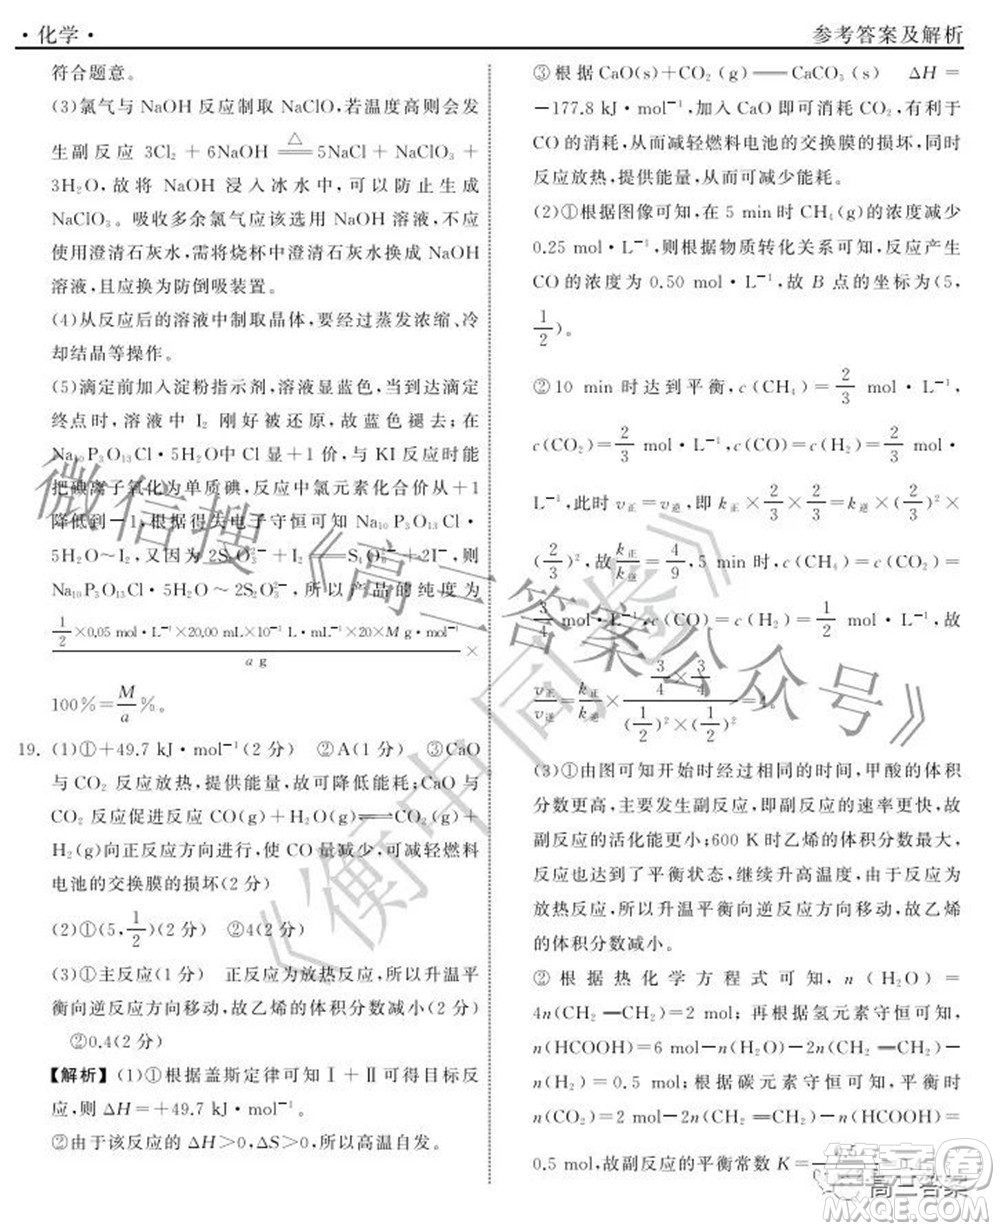 ·化学·
参考答案及解析
符合题意。
(3)氯气与 NaOH 反应制取 NaClO,若温度高则会发
生副反应 3Cl₂ + 6NaOH ══(△) 5NaCl + NaClO₃ +
3H₂O,故将 NaOH 浸入冰水中,可以防止生成
NaClO₃。吸收多余氯气应该选用 NaOH 溶液,不应
使用澄清石灰水,需将烧杯中澄清石灰水换成 NaOH
溶液,且应换为防倒吸装置。
(4)从反应后的溶液中制取晶体,要经过蒸发浓缩、冷
却结晶等操作。
(5)滴定前加入淀粉指示剂,溶液显蓝色,当到达滴定
终点时,溶液中 I₂ 刚好被还原,故蓝色褪去;在
Na₁₀P₃O₁₃Cl·5H₂O 中 Cl 显+1 价,与 KI 反应时
能把碘离子氧化为单质碘,反应中氯元素化合价从+1
降低到-1,根据得失电子守恒可知 Na₁₀P₃O₁₃Cl·
5H₂O~I₂,又因为 2S₂O₃²⁻+I₂══S₄O₆²⁻+2I⁻,则
Na₁₀P₃O₁₃Cl·5H₂O~2S₂O₃²⁻,故产品的纯度为
1/2×0.05 mol·L⁻¹×20.00 mL×10⁻³ L·mL⁻¹×20×M g·mol⁻¹ / a g ×
100%=M/a%。
19. (1)①+49.7 kJ·mol⁻¹(2 分) ②A(1 分) ③CaO
与 CO₂ 反应放热,提供能量,故可降低能耗;CaO 与
CO₂ 反应促进反应 CO(g)+H₂O(g)⇌CO₂(g)+
H₂(g)向正反应方向进行,使 CO 量减少,可减轻燃料
电池的交换膜的损坏(2 分)
(2)①(5,1/2)(2 分) ②4(2 分)
(3)①主反应(2 分) 正反应为放热反应,所以升温平
衡向逆反应方向移动,故乙烯的体积分数减小(2 分)
②0.4(2 分)
【解析】(1)①根据盖斯定律可知Ⅰ+Ⅱ可得目标反
应,则 ΔH=+49.7 kJ·mol⁻¹。
②由于该反应的 ΔH>0,ΔS>0,所以高温自发。
③根据 CaO(s)+CO₂(g)══CaCO₃(s) ΔH=
-177.8 kJ·mol⁻¹,加入 CaO 即可消耗 CO₂,有利于
CO 的消耗,从而减轻燃料电池的交换膜的损坏,同时
反应放热,提供能量,故可减少能耗。
(2)①根据图像可知,在 5 min 时 CH₄(g)的浓度减少
0.25 mol·L⁻¹,则根据物质转化关系可知,反应产生
CO 的浓度为 0.50 mol·L⁻¹,故 B 点的坐标为(5,
1/2)。
②10 min 时达到平衡,c(CH₄)=2/3 mol·L⁻¹,
c(CO₂)=2/3 mol·L⁻¹,c(CO)=c(H₂)=2/3 mol·
L⁻¹,此时 v正=v逆,即 k正×2/3×2/3=k逆×(2/3)²×
(2/3)²,故k正/k逆=4/9,5 min 时,c(CH₄)=c(CO₂)=
3/4 mol·L⁻¹,c(CO)=c(H₂)=1/2 mol·L⁻¹,故
v正/v逆=k正/k逆×(3/4×3/4)/((1/2)²×(1/2)²)=4。
(3)①由图可知开始时经过相同的时间,甲酸的体积
分数更高,主要发生副反应,即副反应的速率更快,故
副反应的活化能更小;600 K 时乙烯的体积分数最大,
反应达到了平衡状态,继续升高温度,由于该反应为
放热反应,所以升温平衡向逆反应方向移动,故乙烯
的体积分数减小。
②根据热化学方程式可知,n(H₂O)=
4n(CH₂═CH₂)=2 mol;再根据氢元素守恒可知,
n(HCOOH)=6 mol-n(H₂O)-2n(CH₂═CH₂)
=0.5 mol;根据碳元素守恒可知,
n(CO₂)=2 mol-2n(CH₂═CH₂)-n(HCOOH)=
0.5 mol,故副反应的平衡常数 K=
微信搜《高三答案公众号》
《衡中同卷》
答案圈
高三答案
MXQE.COM